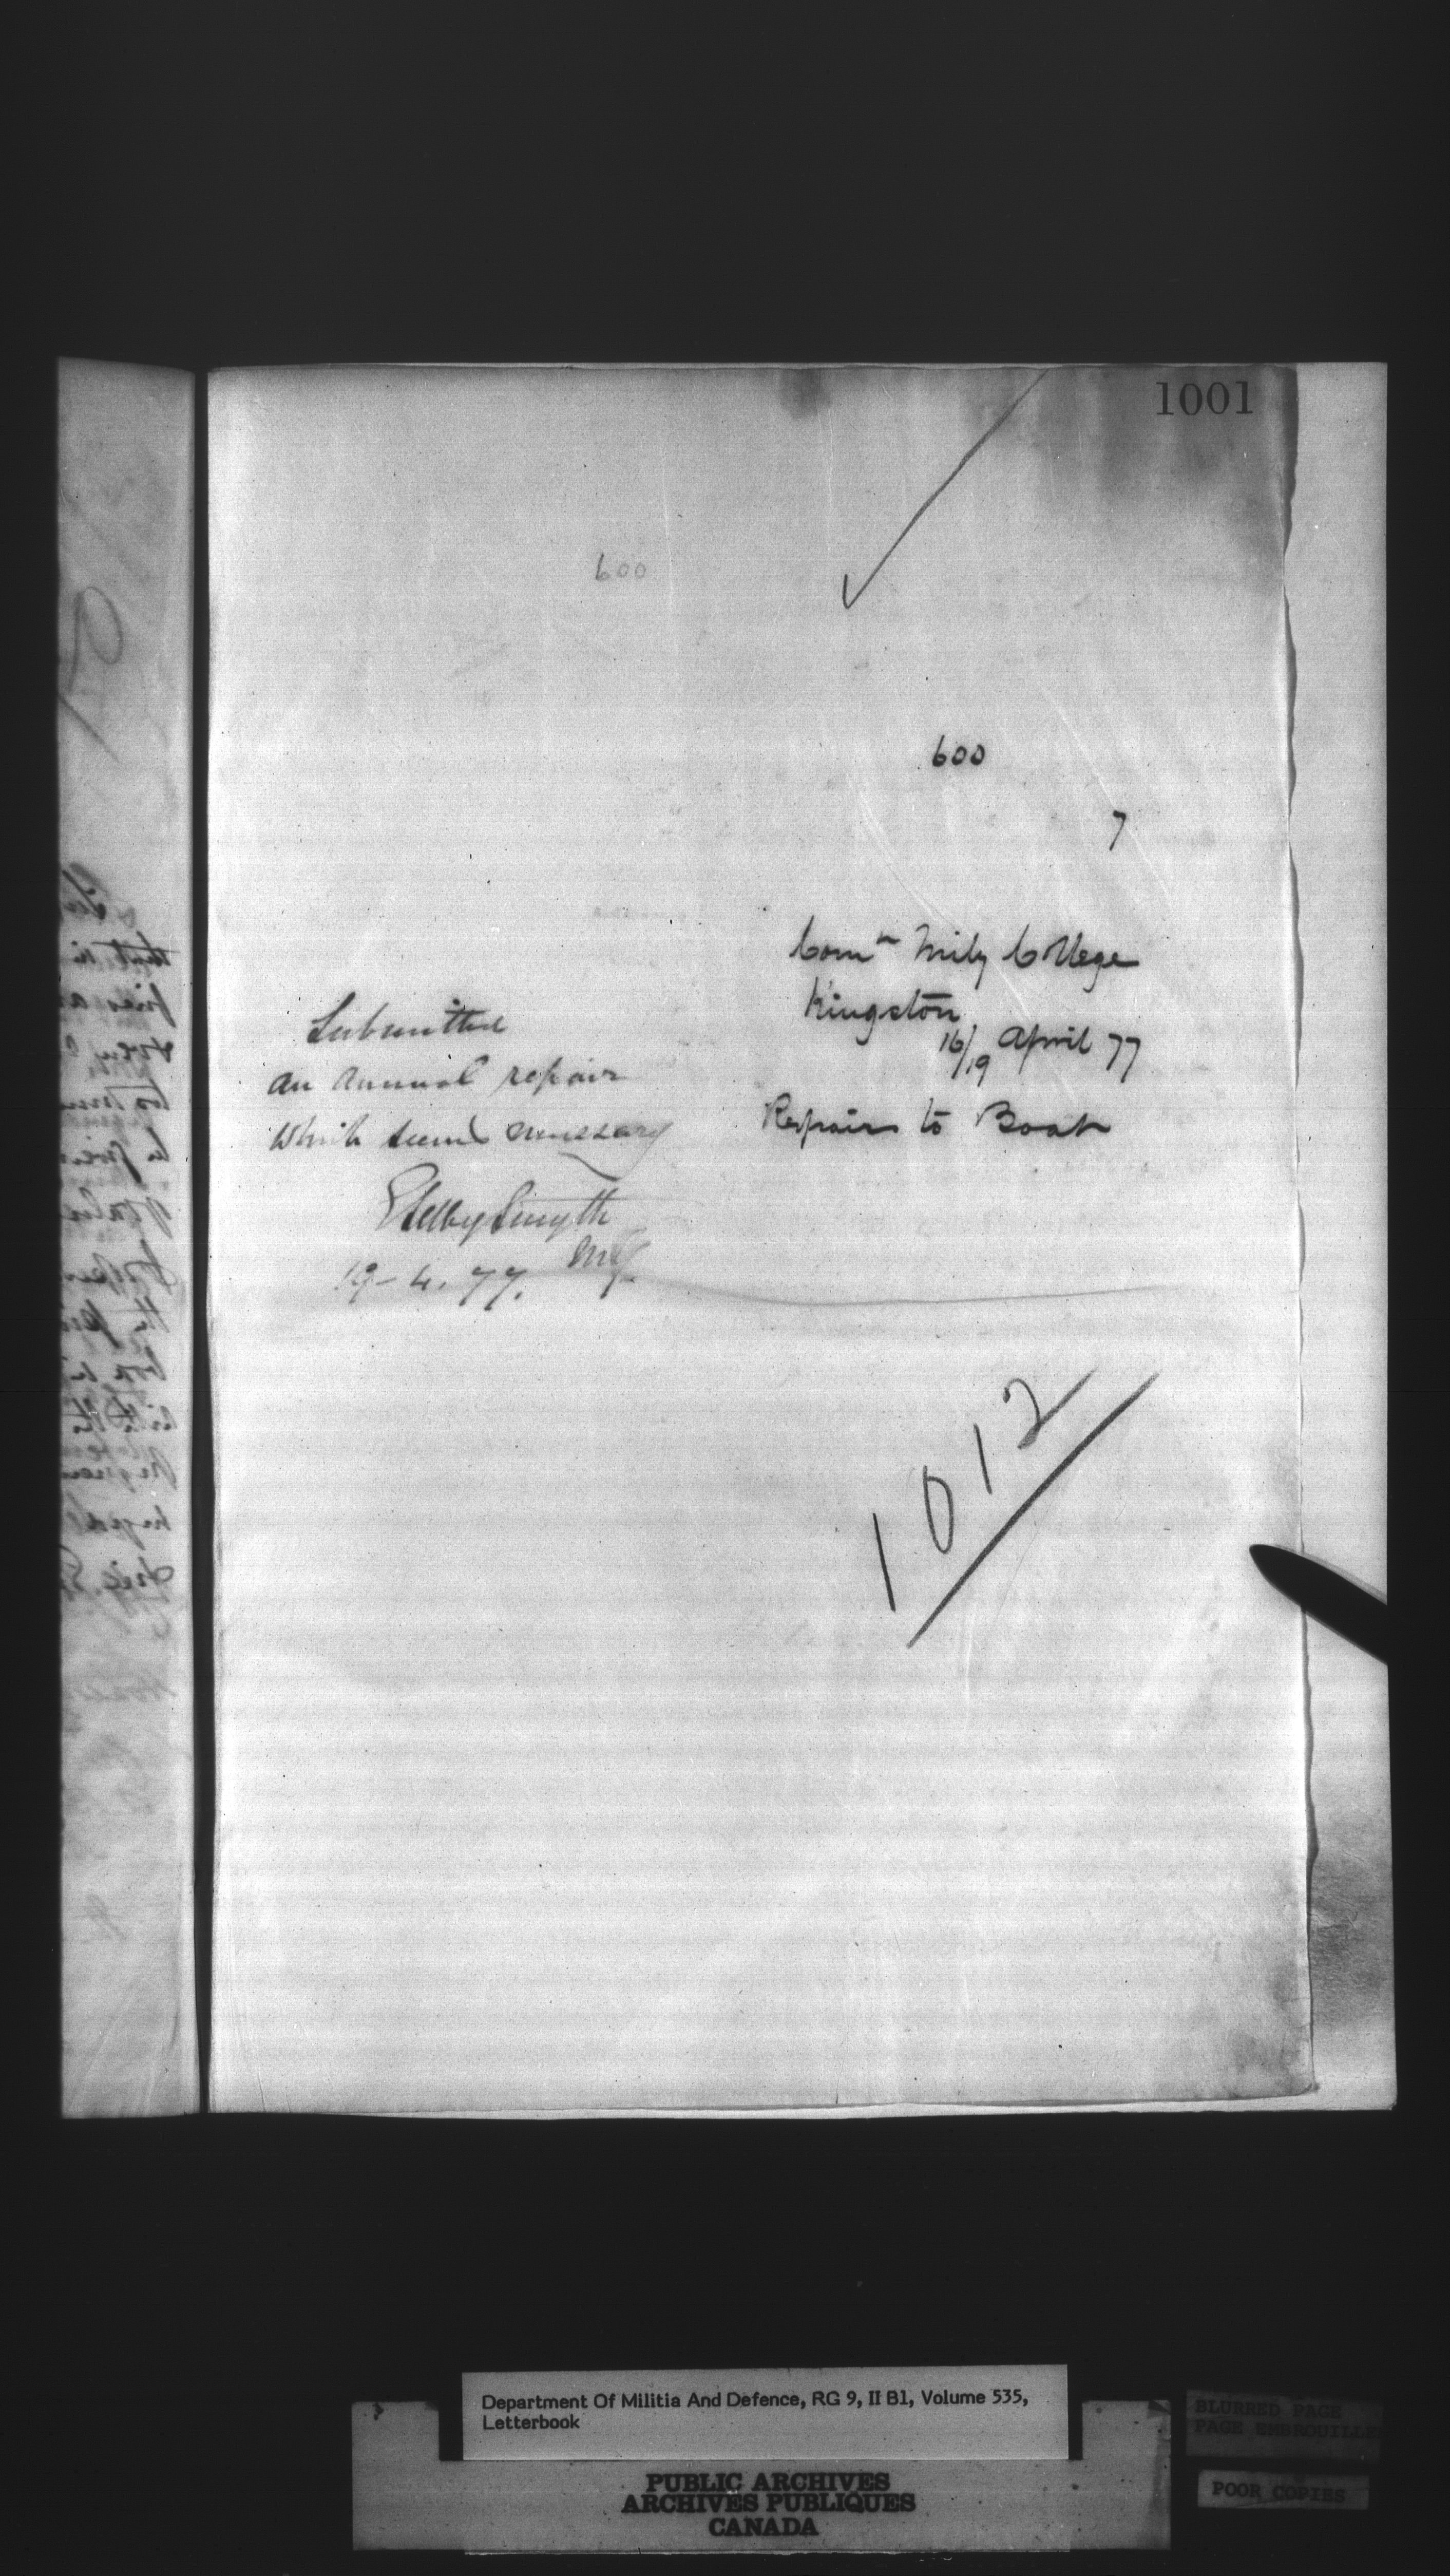 1001
600
600
7
Comn Mily College
Kingston
16/19 April 77
Repairs to Boats
Submitted
an annual repair
which seems necessary
ESelby Smyth
MG
19-4.77.
1012
Department Of Militia And Defence, RG 9, II B1, Volume 535,
Letterbook
PUBLIC ARCHIVES
ARCHIVES PUBLIQUES
CANADA
BLURRED PAGE
PAGE EMBROUILLE
POOR COPIES